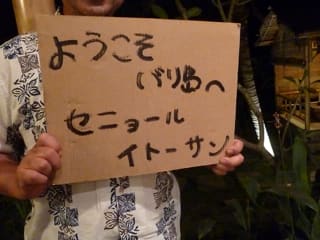 ようこそ
バリ島へ
セニョール
イトーサン